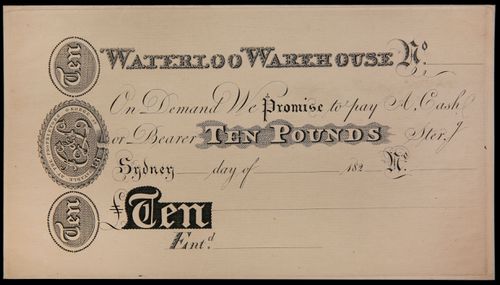 Ten
WATERLOO WAREHOUSE No.
On Demand We Promise to pay A. Cash
or Bearer TEN POUNDS Ster.g
Sydney day of 182 No.
£Ten
Ten
Ent.d